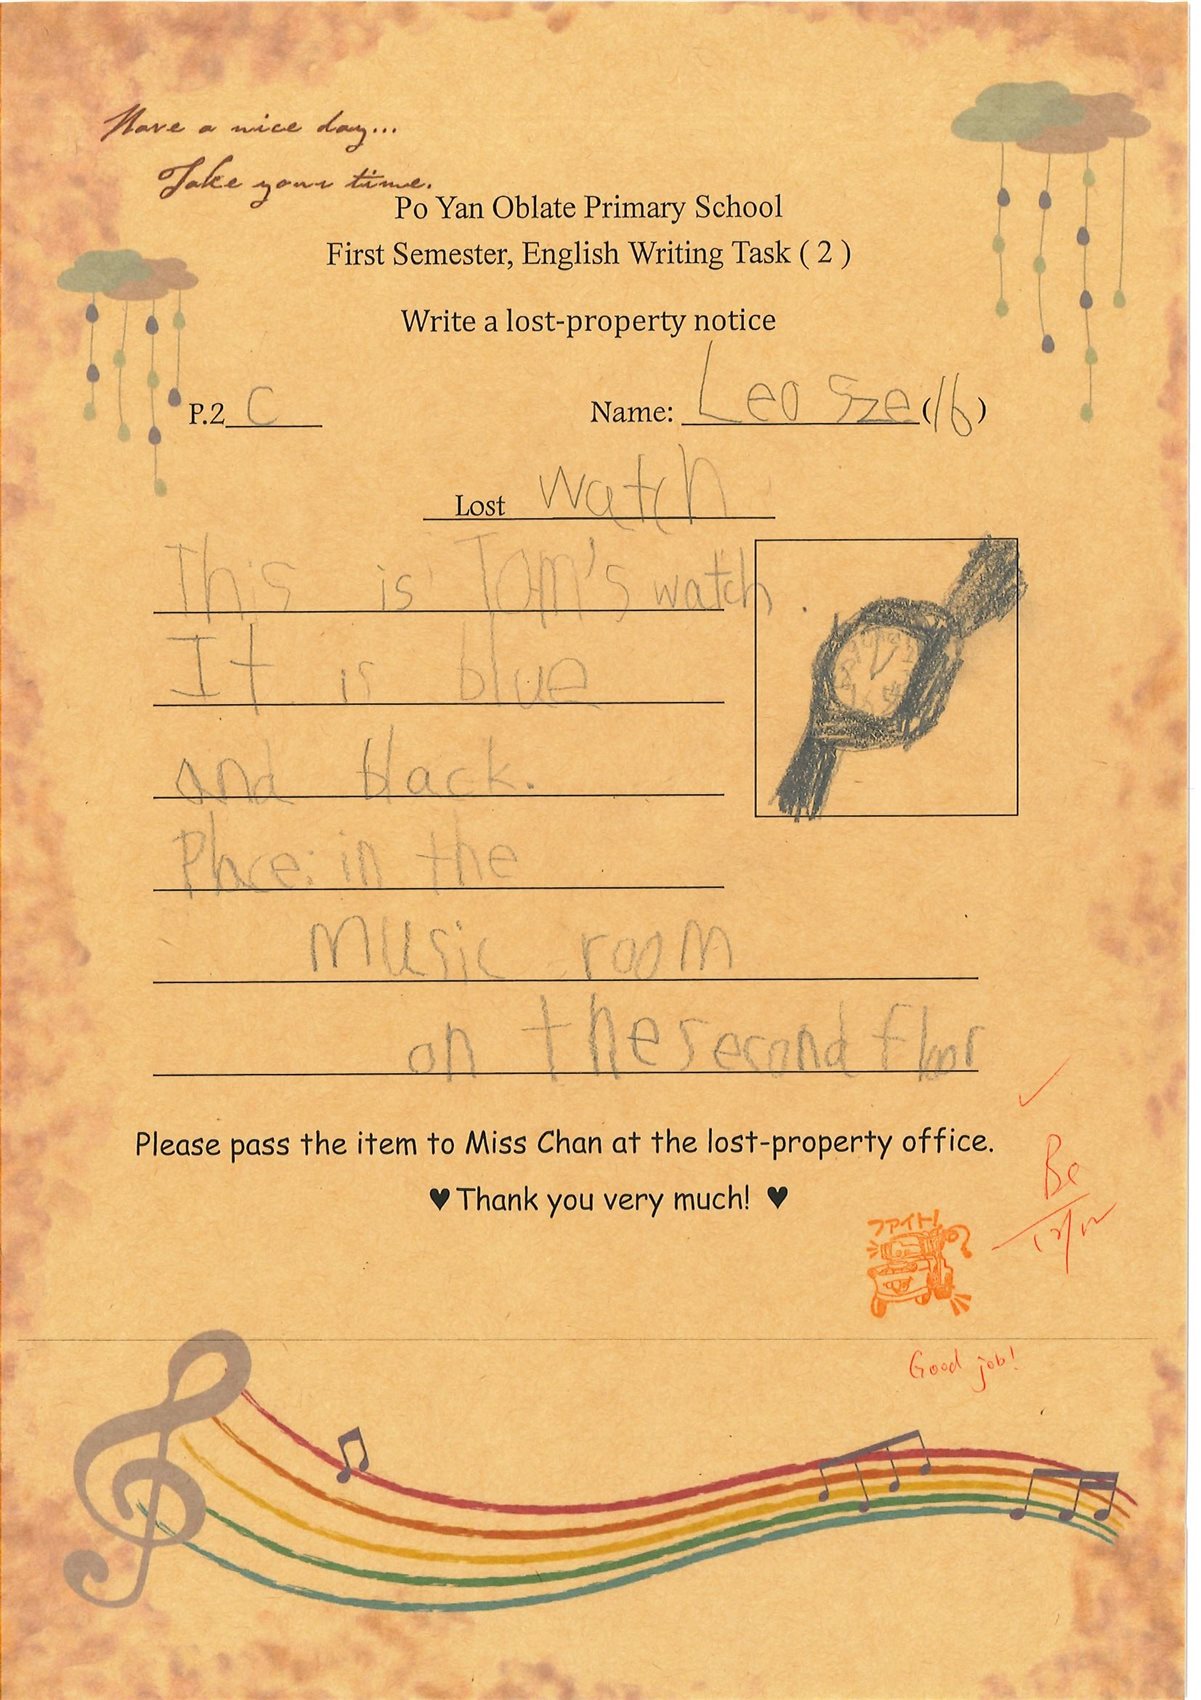 Have a nice day...
Take your time.
Po Yan Oblate Primary School
First Semester, English Writing Task ( 2 )
Write a lost-property notice
P.2 C Name: Leo Sze (16)
Lost watch
This is Tom's watch.
It is blue
and black.
Place: in the
music room
on the second floor
Please pass the item to Miss Chan at the lost-property office.
♥ Thank you very much! ♥
ファイト!
Good job!